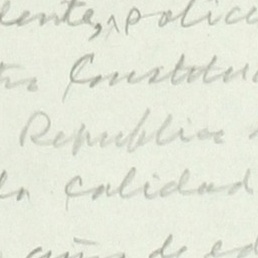 dente, police
Constitu
Republica
la calidad
año de ed